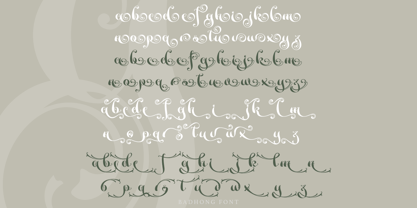 a b c d e f g h i j k l m
n o p q r s t u v w x y z
a b c d e f g h i j k l m
n o p q r s t u v w x y z
a b c d e f g h i j k l m
n o p q r s t u v w x y z
a b c d e f g h i j k l m
n o p q r s t u v w x y z